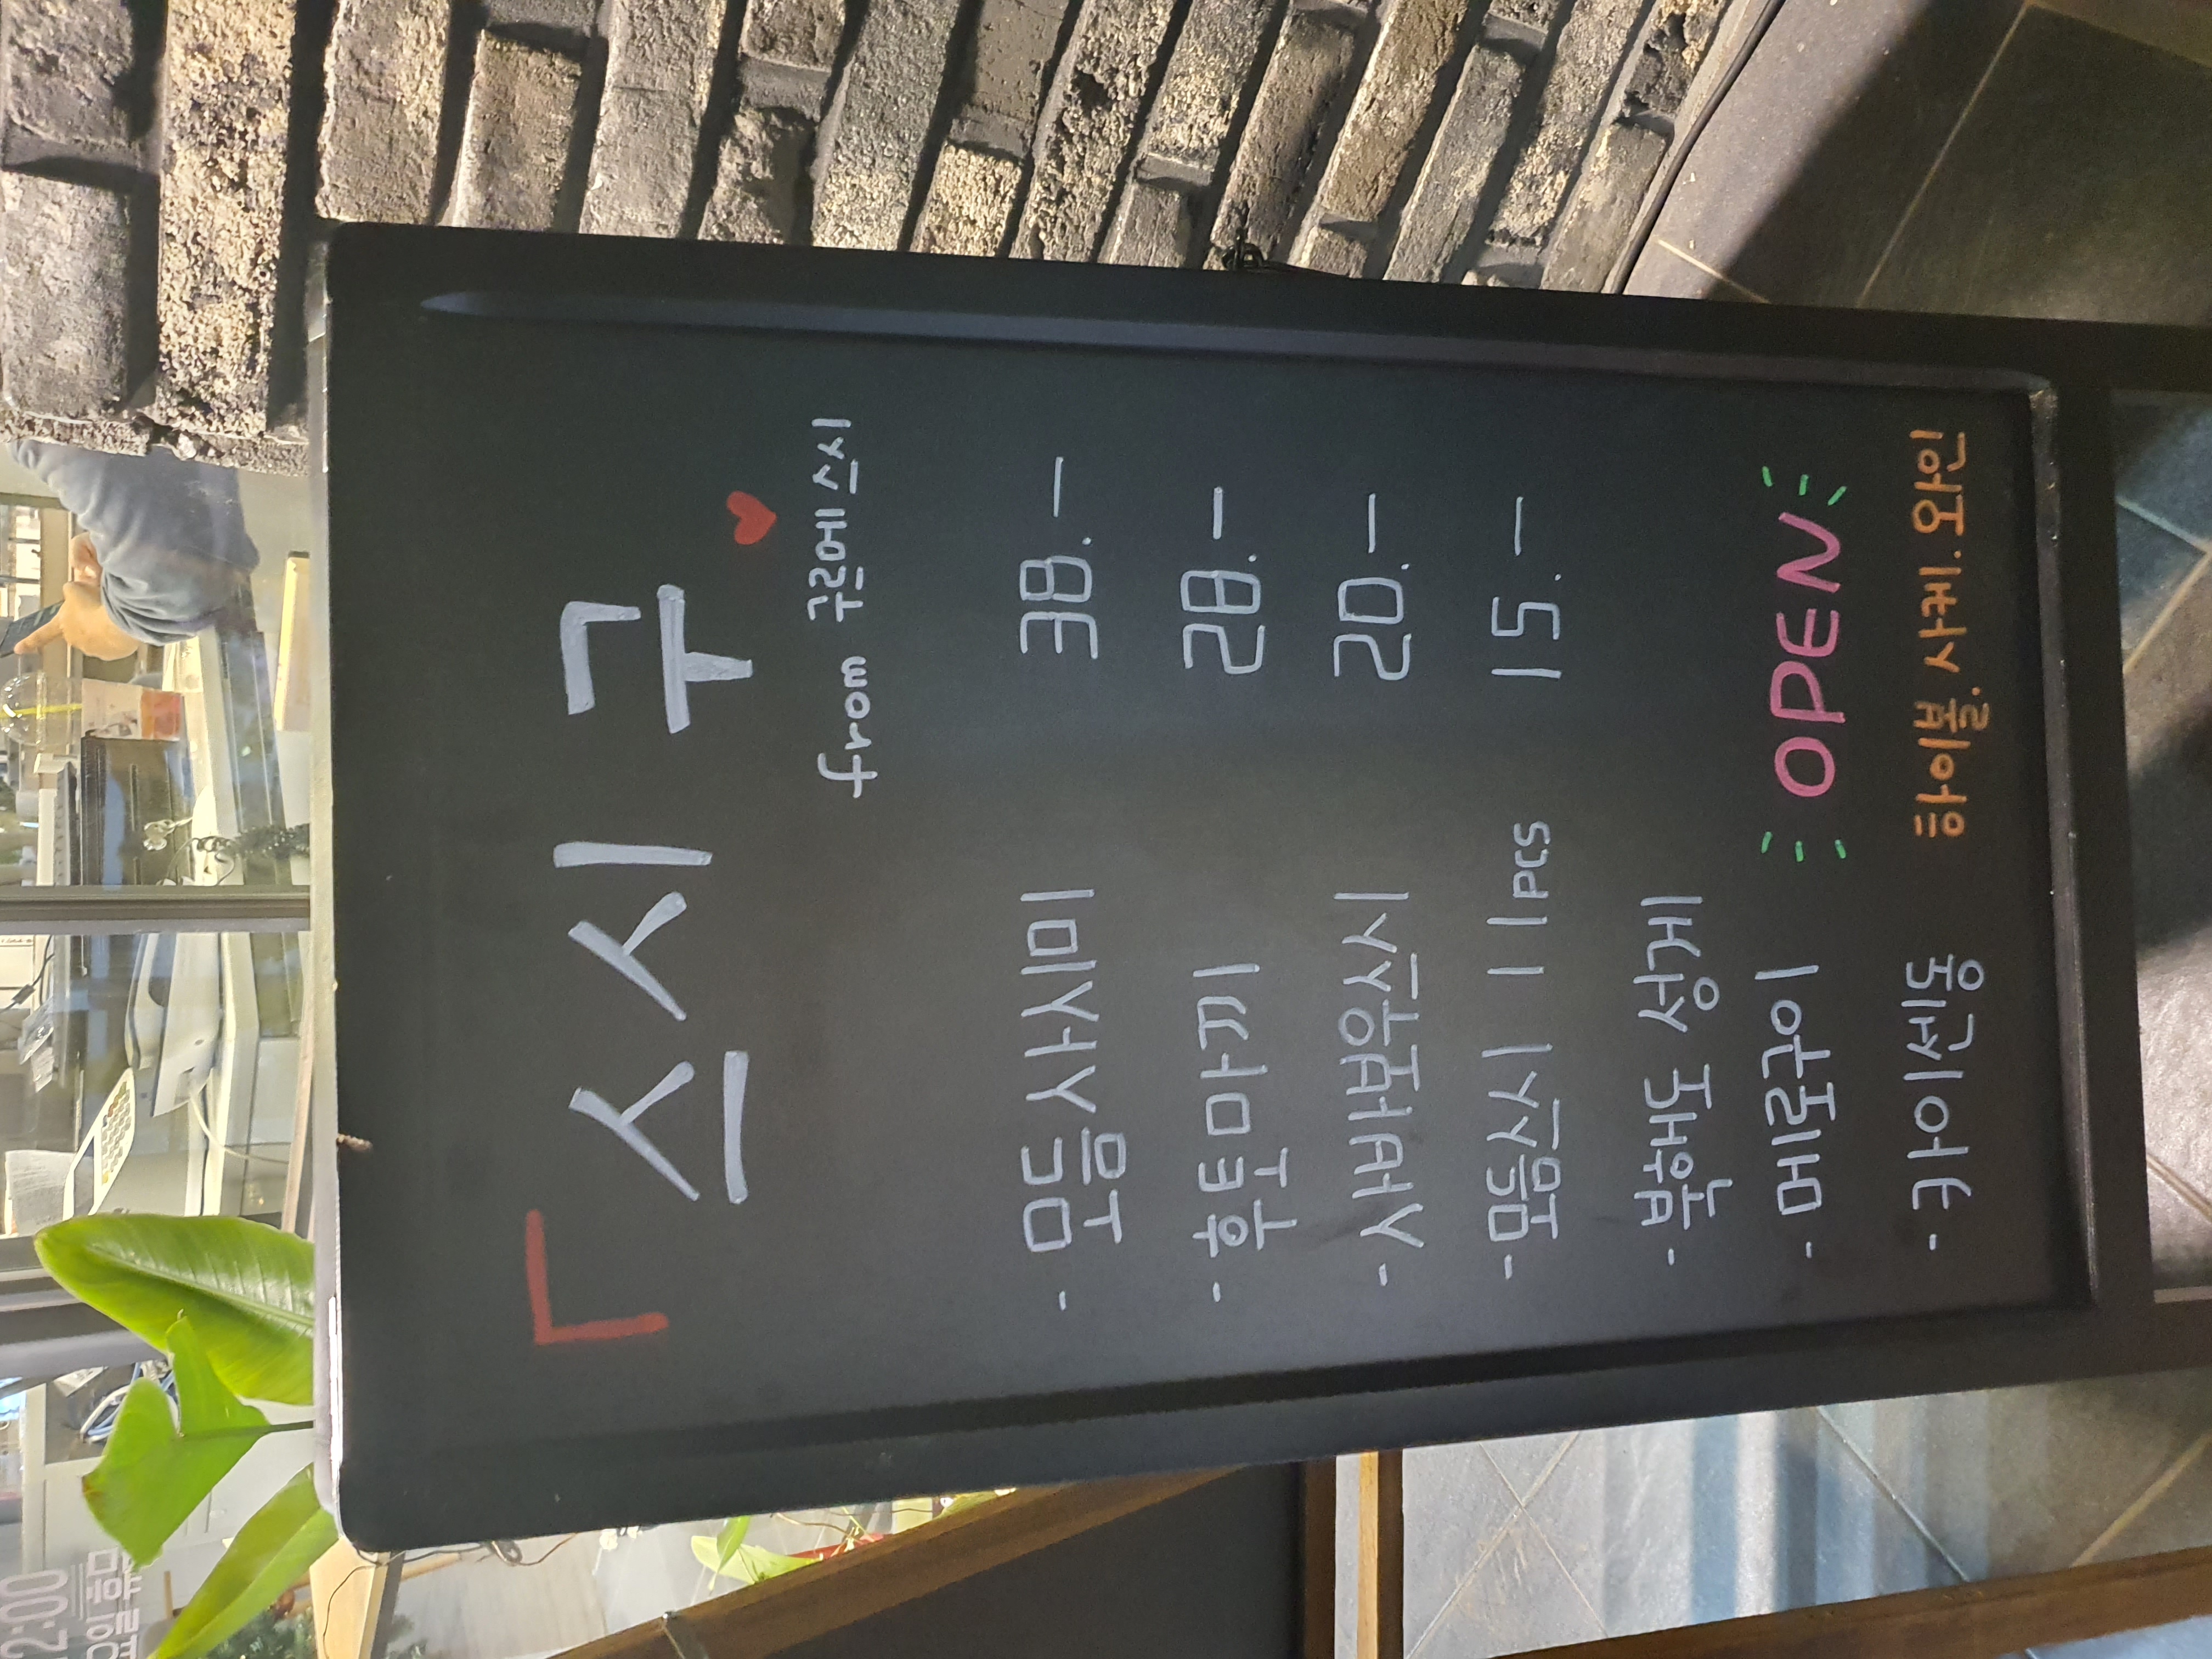 2:00
요일 휴무
스시 구
from 구르메 스시
- 모듬사시미 38.-
- 후토마끼 28.-
- 사바보우스시 20.-
- 모듬스시 11pcs 15.-
- 북해도 성게
- 메로구이 OPEN
- 카이센동 하이볼. 사케. 와인